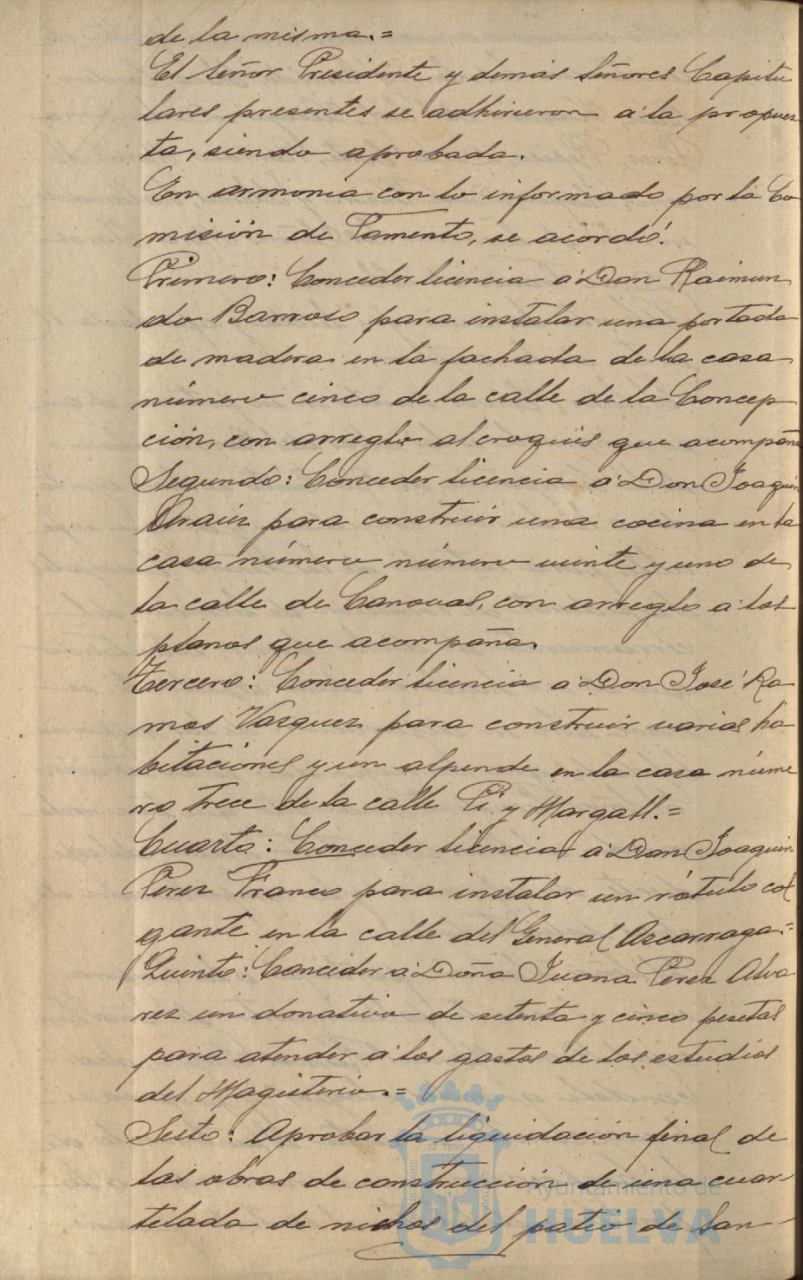 de la misma.=
El Señor Presidente y demás Señores Capitu
lares presentes se adhirieron a la propues
ta, siendo aprobada.
En armonia con lo informado por la Co
misión de Fomento, se acordó:
Primero: Conceder licencia a Don Raimun
do Barroso para instalar una portada
de madera en la fachada de la casa
número cinco de la calle de la Concep
ción, con arreglo al croquis que acompaña
Segundo: Conceder licencia a Don Joaquin
para construir una cocina en la
casa número número veinte y uno de
la calle de Canovas, con arreglo a los
planos que acompaña.
Tercero: Conceder licencia a Don José Ra
mos Vazquez para construir varias ha
bitaciones y un alpende en la casa núme
ro trece de la calle Pi y Margall.=
Cuarto: Conceder licencia a Don Joaquin
Perez Franco para instalar un rótulo col
gante en la calle del General Azcarraga.=
Quinto: Conceder a Doña Juana Perez Alva
rez un donativo de setenta y cinco pesetas
para atender a los gastos de los estudios
del Magisterio.=
Sesto: Aprobar la liquidación final de
las obras de construcción de una cuar-
telada de nichos del patio de San-
Ayuntamiento de
HUELVA